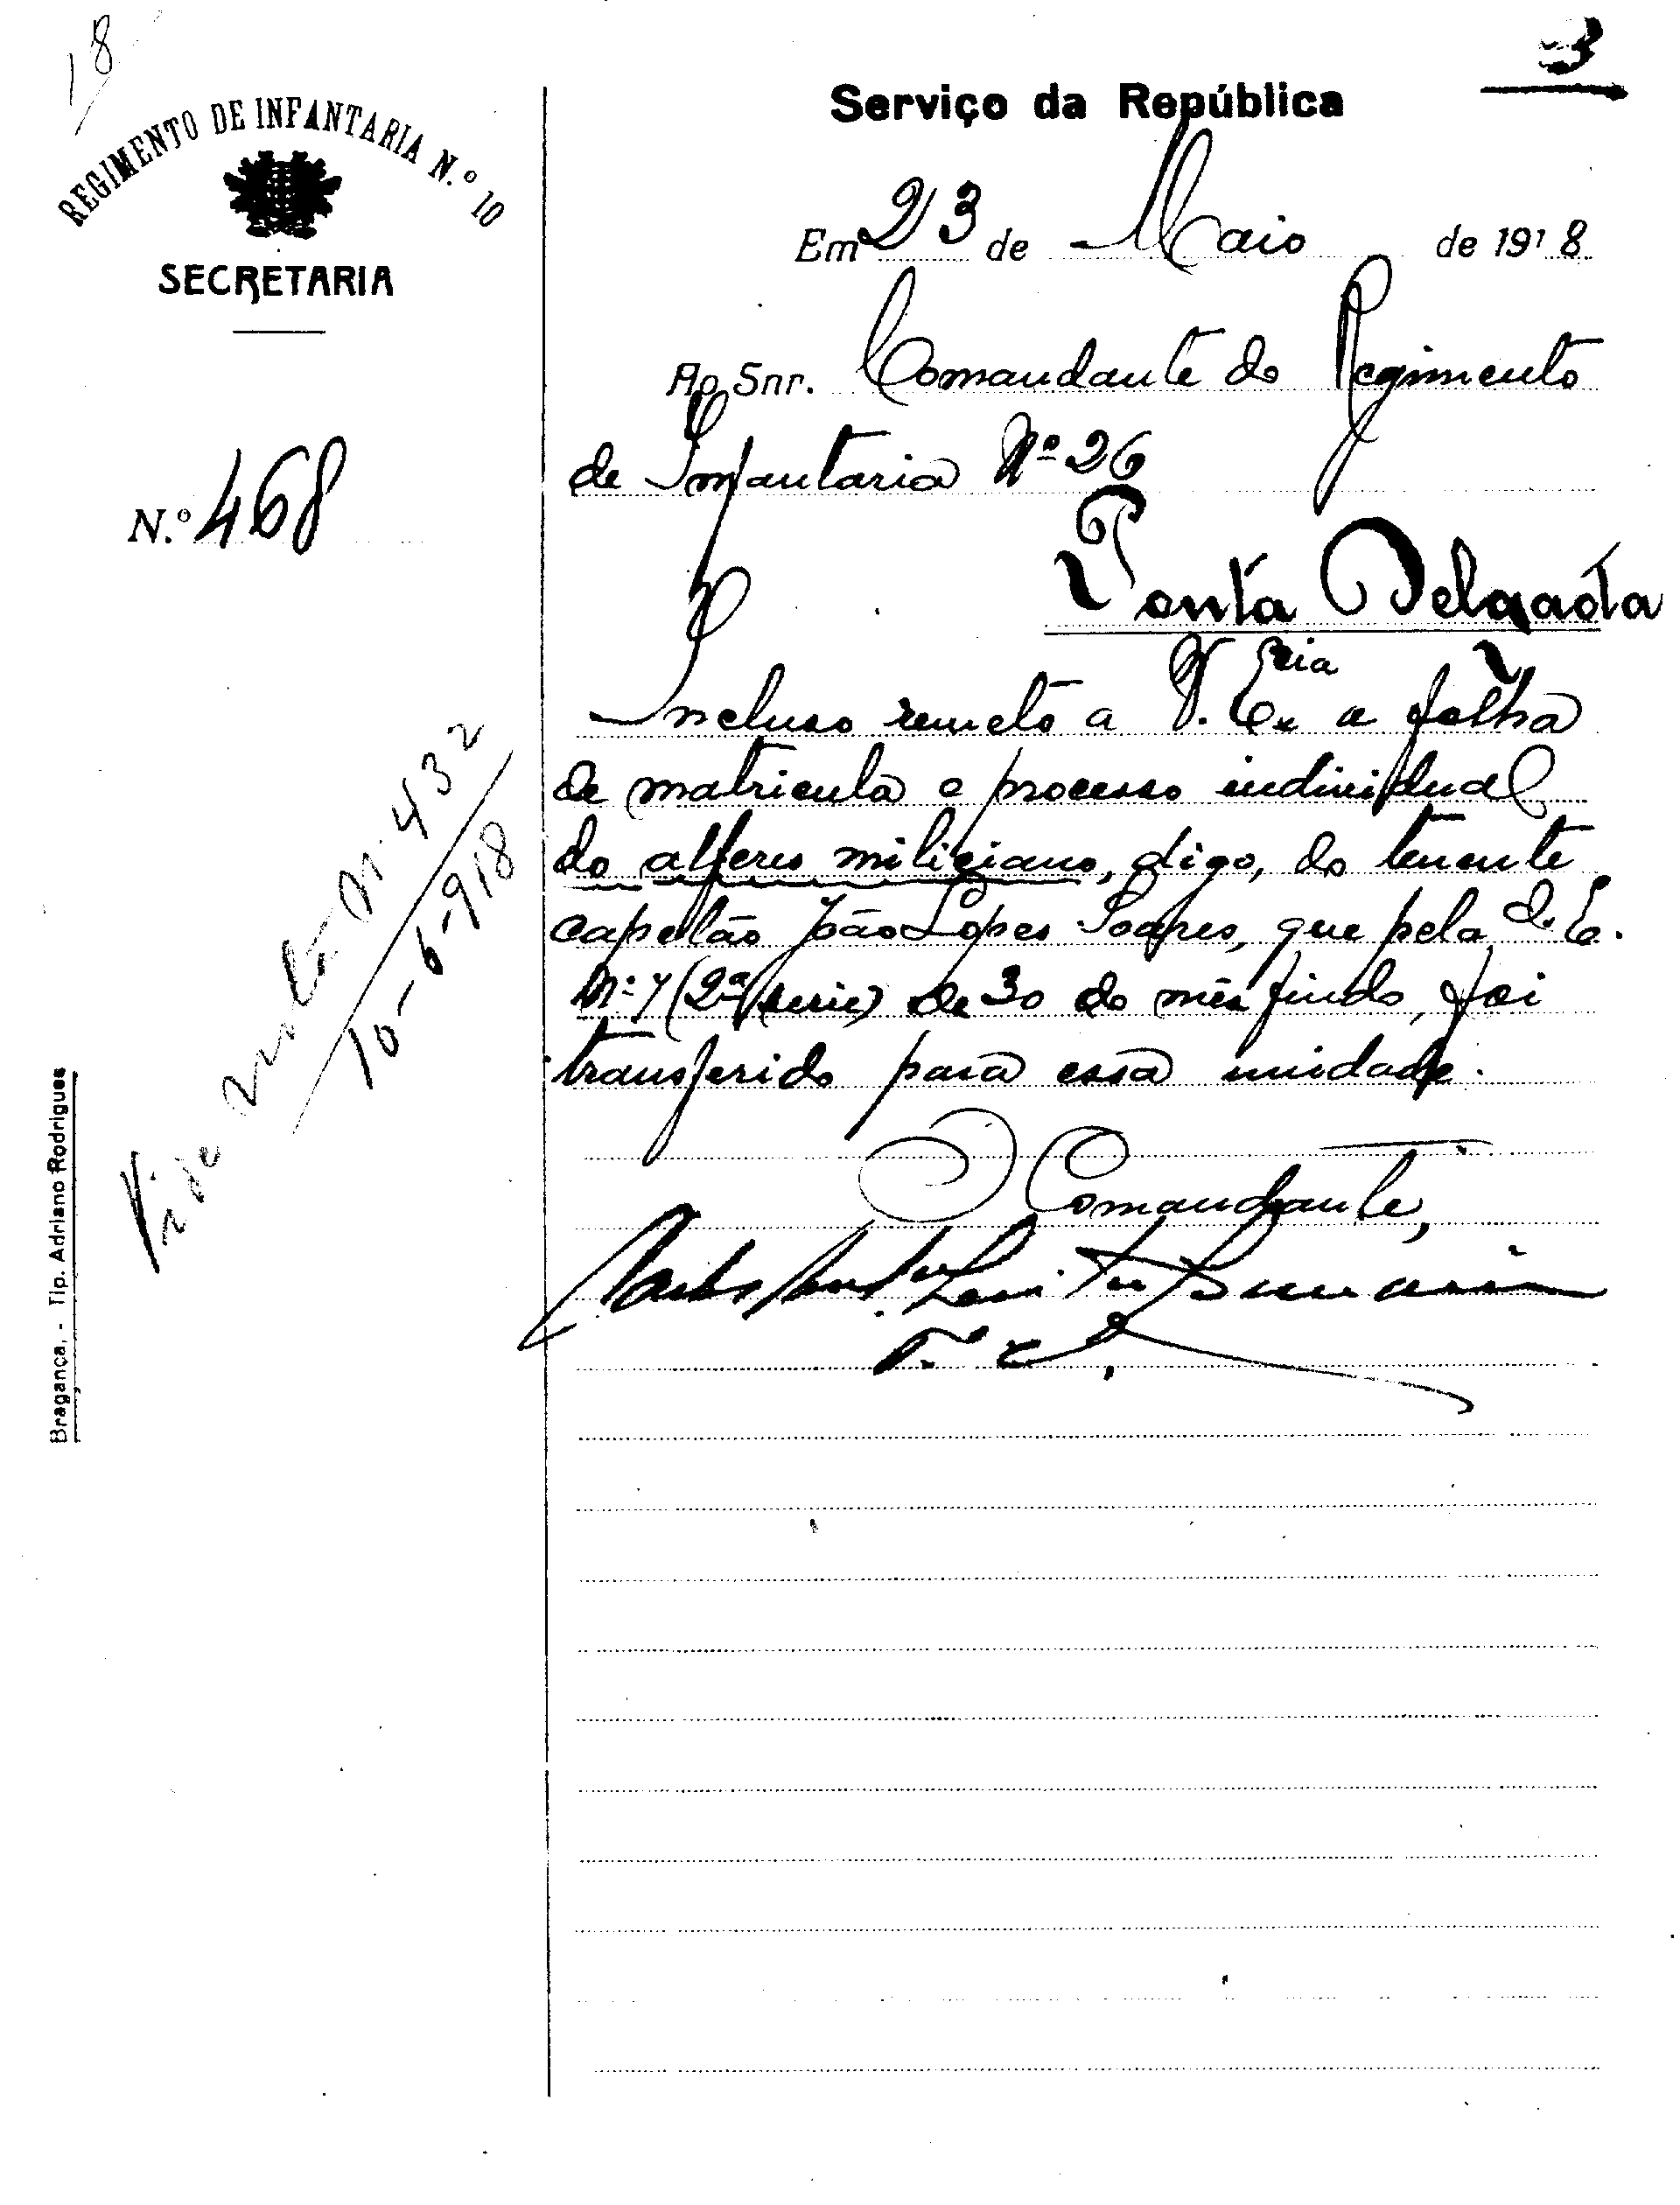 18
3
REGIMENTO DE INFANTARIA N.º 10
SECRETARIA
N.º 468
Serviço da República
Em 23 de Maio de 1918
Ao Snr. Comandante do Regimento
de Infantaria Nº 26
Ponta Delgada
Incluso remeto a V. Exª a folha
de matricula e processo individual
do alferes miliciano, digo, do tenente
capelão João Lopes Soares, que pela O. E.
Nº 7 (2ª serie) de 30 do mês findo, foi
transferido para essa unidade.
O Comandante,
T. C.
Vide nota Nº 432
10-6-918
Bragança, - Tip. Adriano Rodrigues